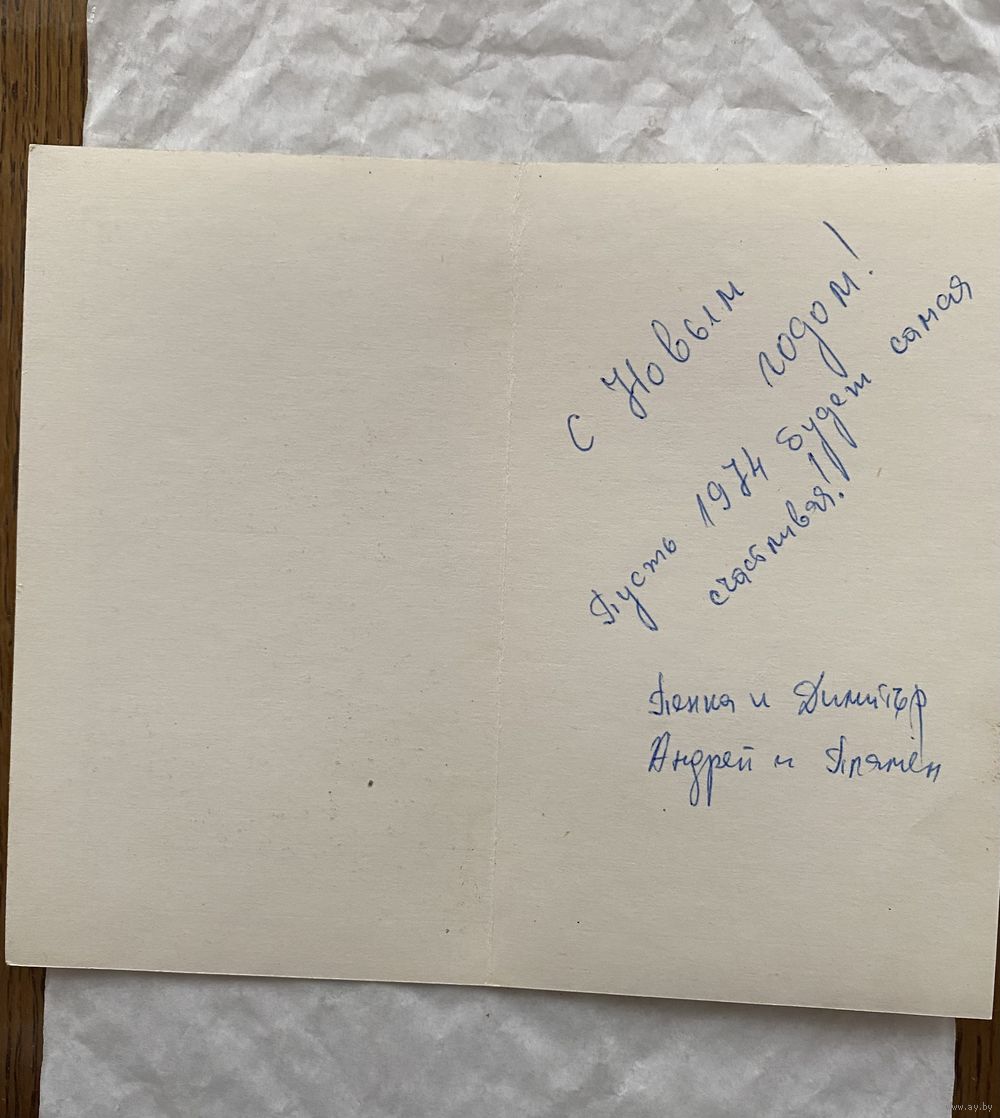 С Новым
годом!
Пусть 1974 будет самая
счастливая!
Пенка и Димитър
Андрей и Плямен
www.ay.by